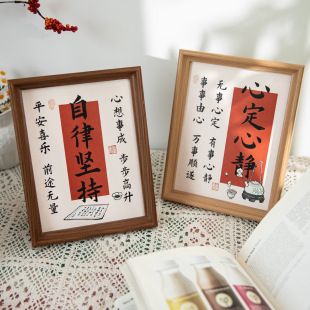 心想事成 步步高升
自律坚持
平安喜乐 前途无量
心定心静
无事心定 有事心静
事事由心 万事顺遂